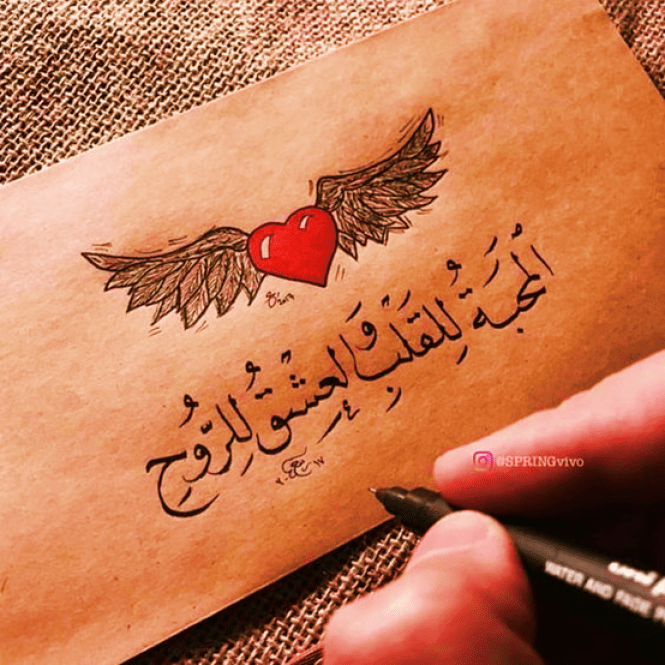 المَحَبَةُ لِلقَلبِ وَالعِشقُ لِلرّوُحِ
@SPRINGvivo
uni
WATER AND FADE